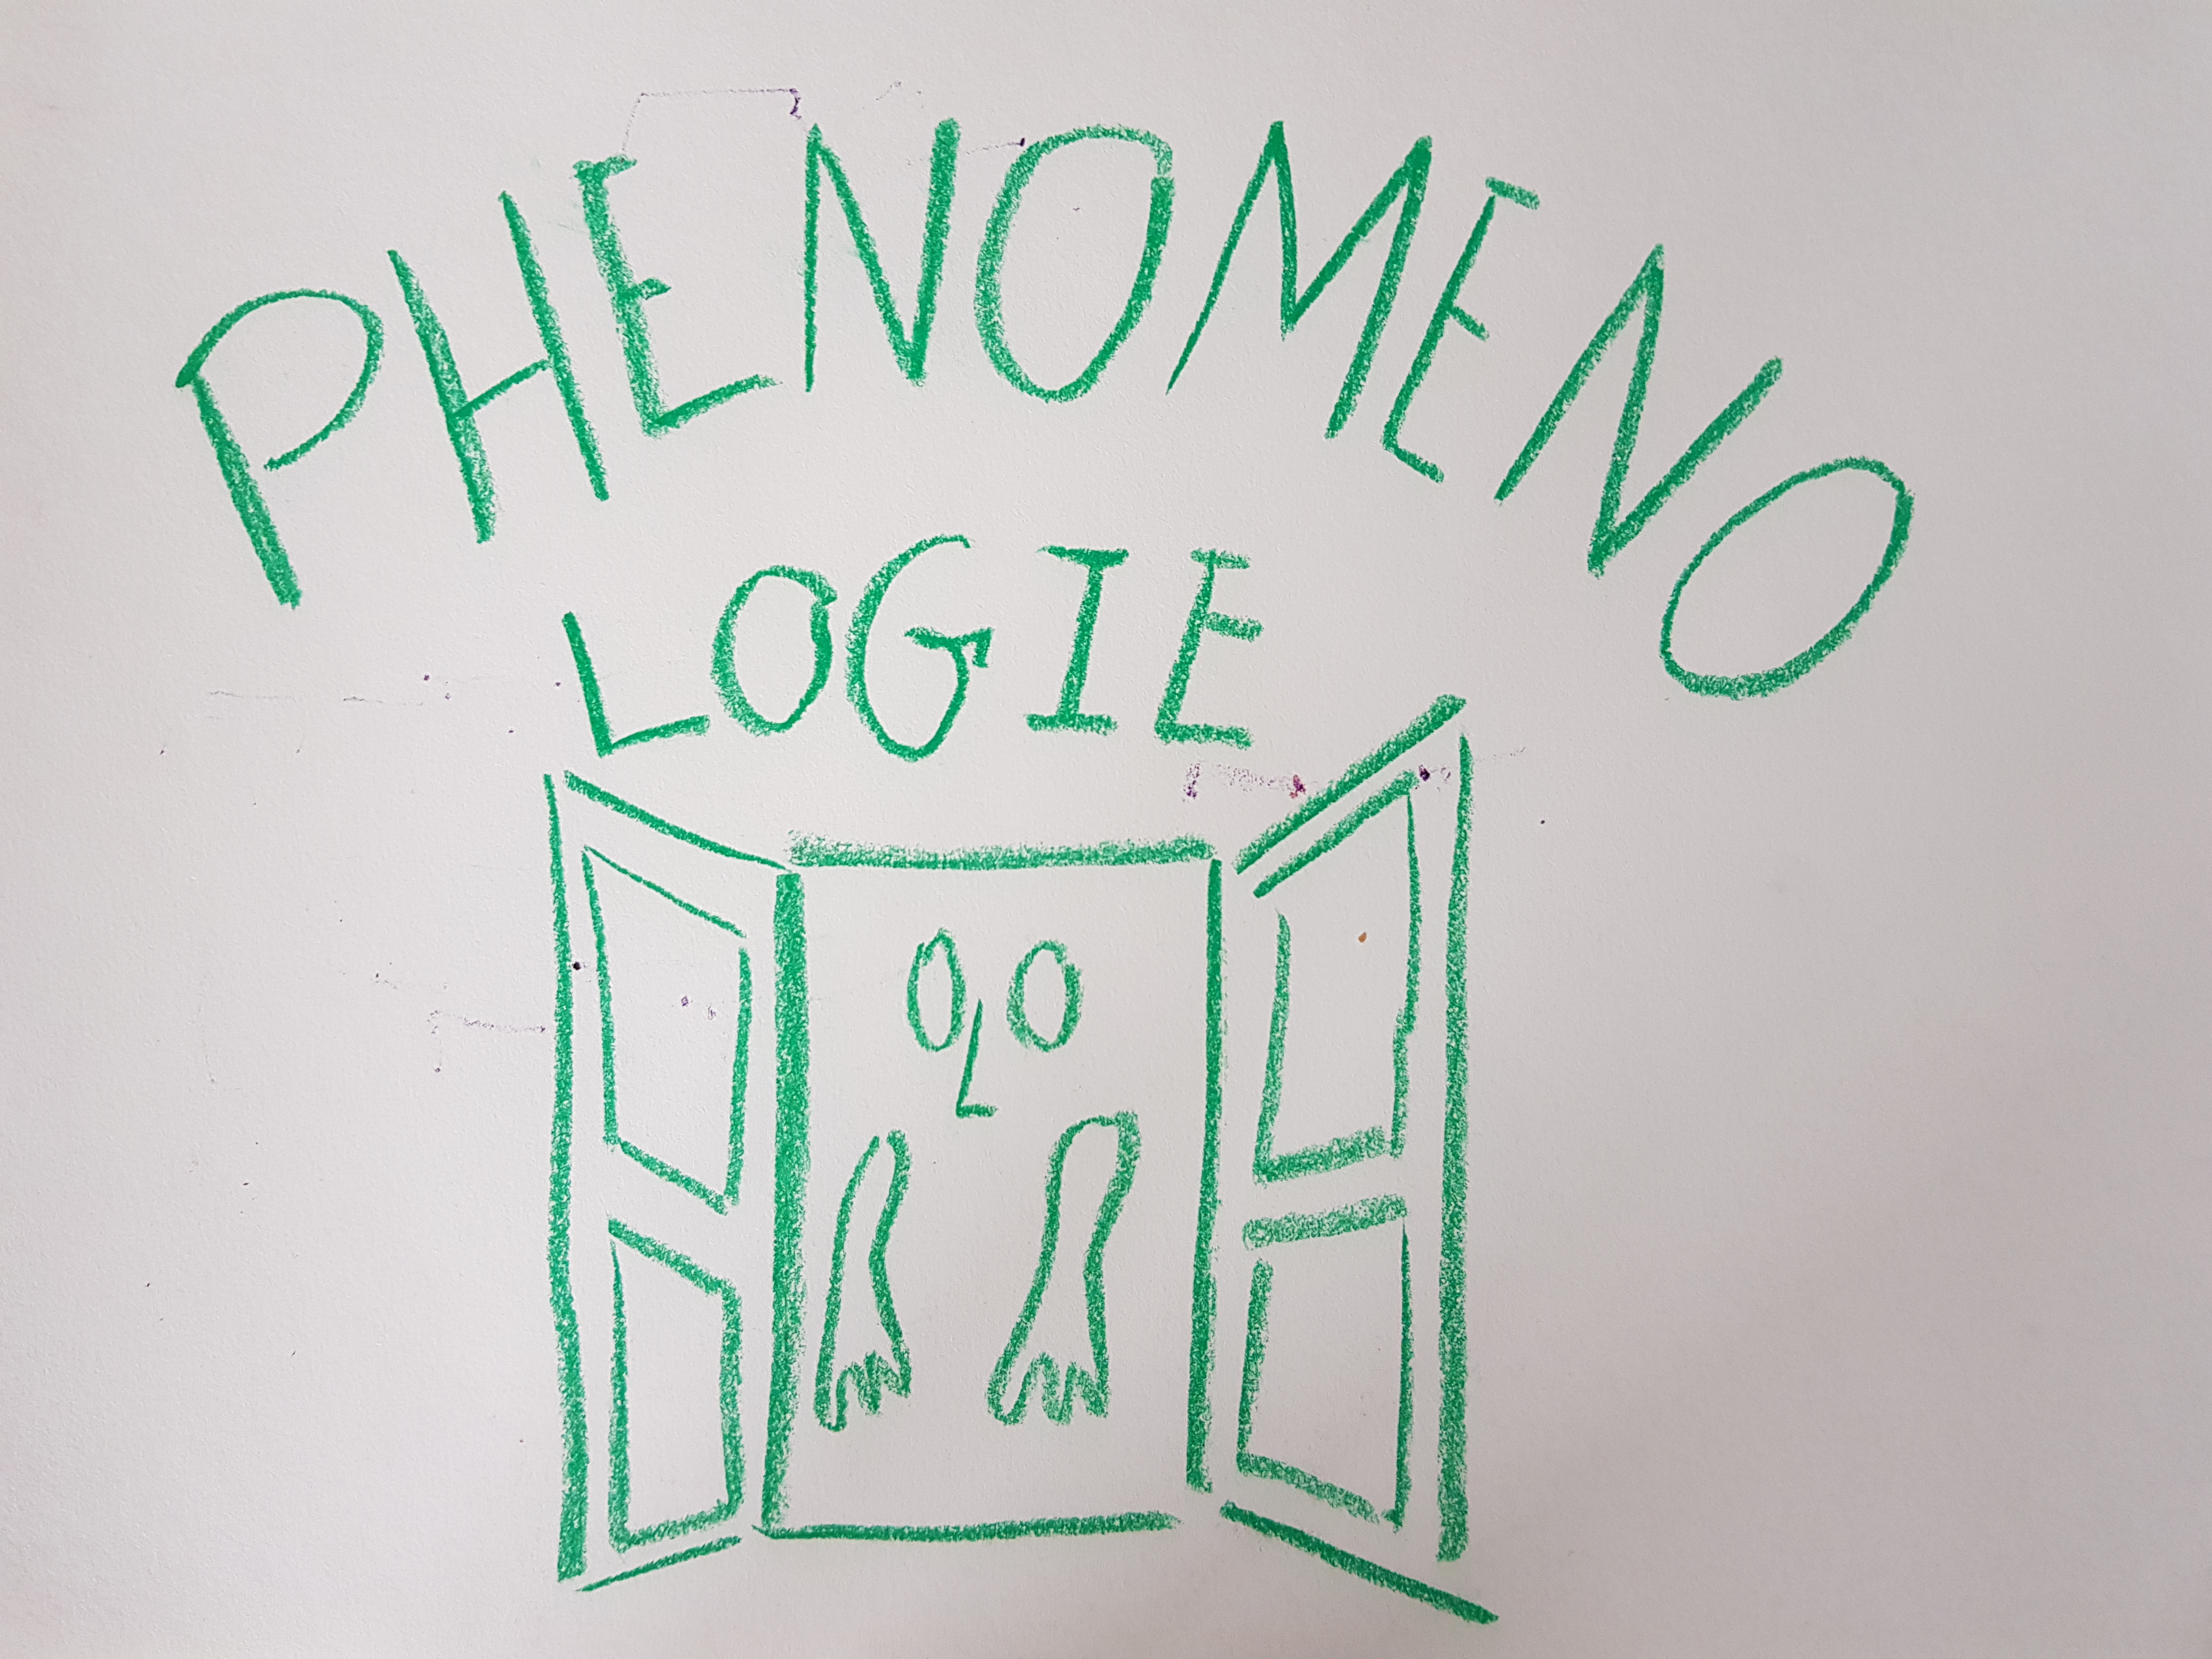 PHENOMENO
LOGIE